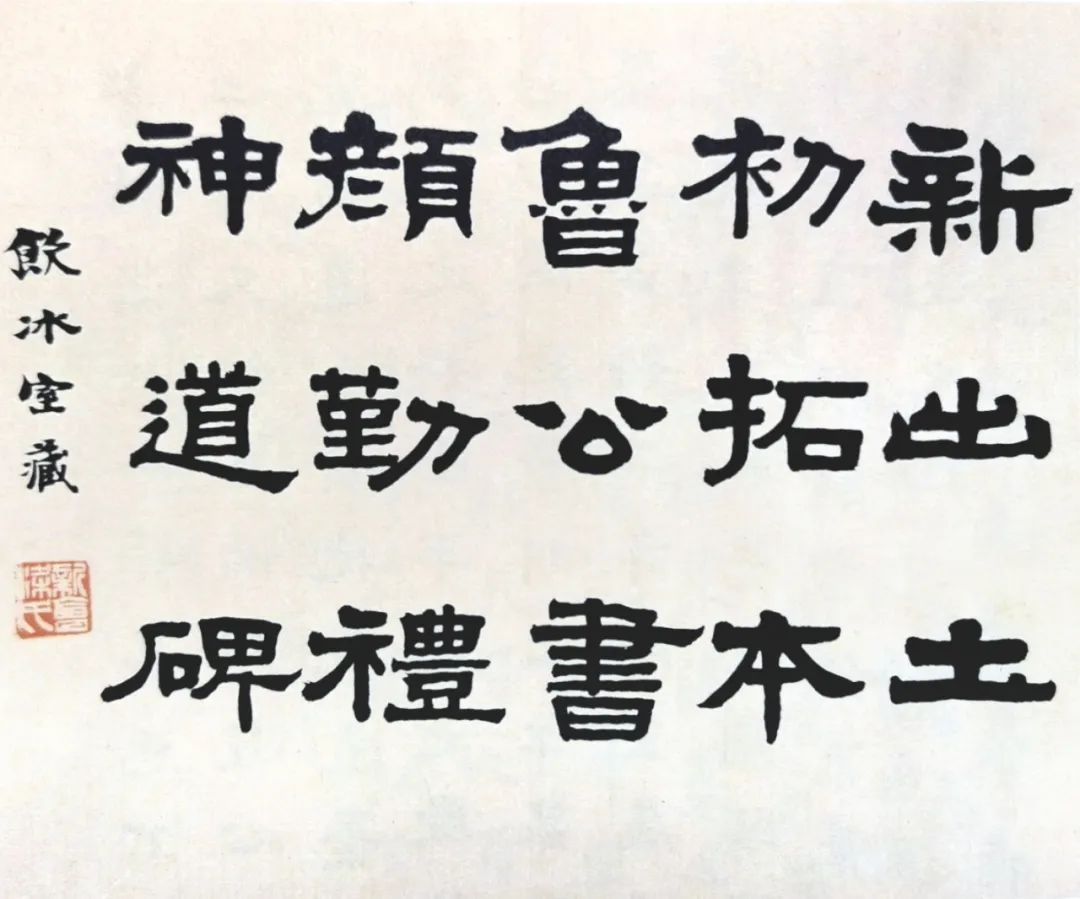 新出土
初拓本
魯公書
顏勤禮
神道碑
飲冰室藏
新會梁氏